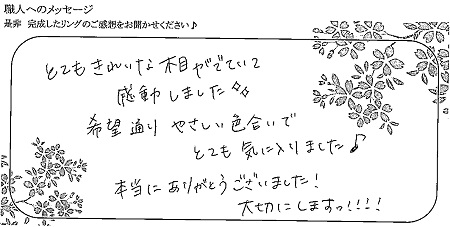 職人へのメッセージ
是非 完成したリングのご感想をお聞かせください♪
とてもきれいな木目がでていて
感動しました✨
希望通り やさしい色合いで
とても 気に入りました♪
本当にありがとうございました!
大切にしますっ!!!!